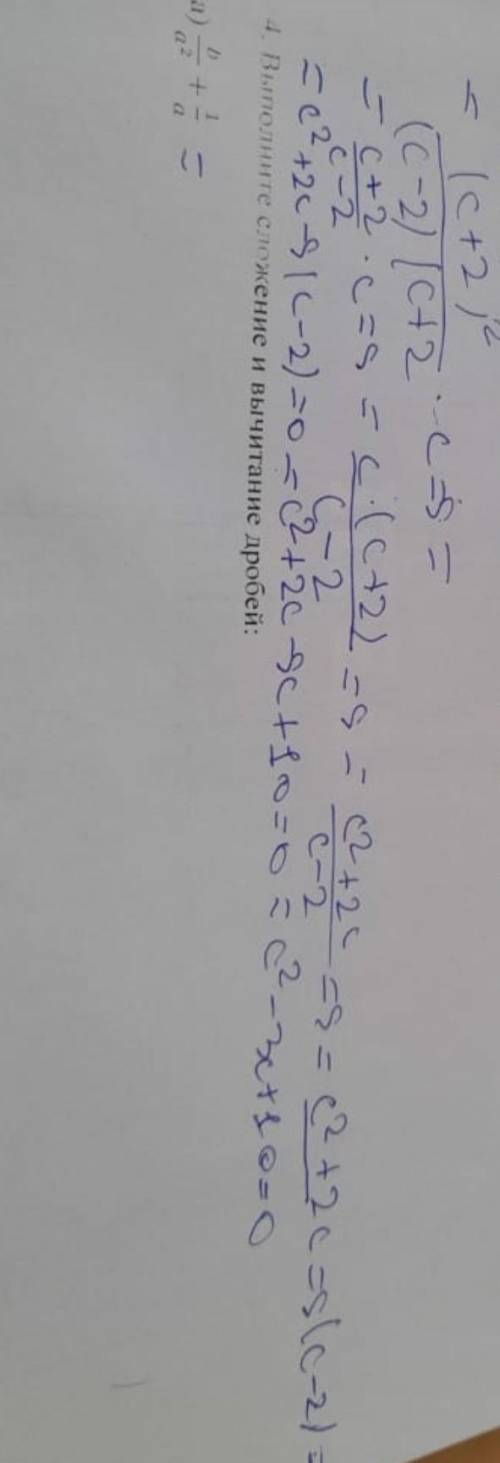 = (c+2)² / (c-2)(c+2 · c=5 =
= c+2 / c-2 · c=5 = c·(c+2) / c-2 =5 = c²+2c / c-2 =5 = c²+2c=5(c-2)=
= c²+2c-5(c-2)=0=c²+2c-5c+10=0=c²-3c+10=0
4. Выполните сложение и вычитание дробей:
а) b/a² + 1/a =